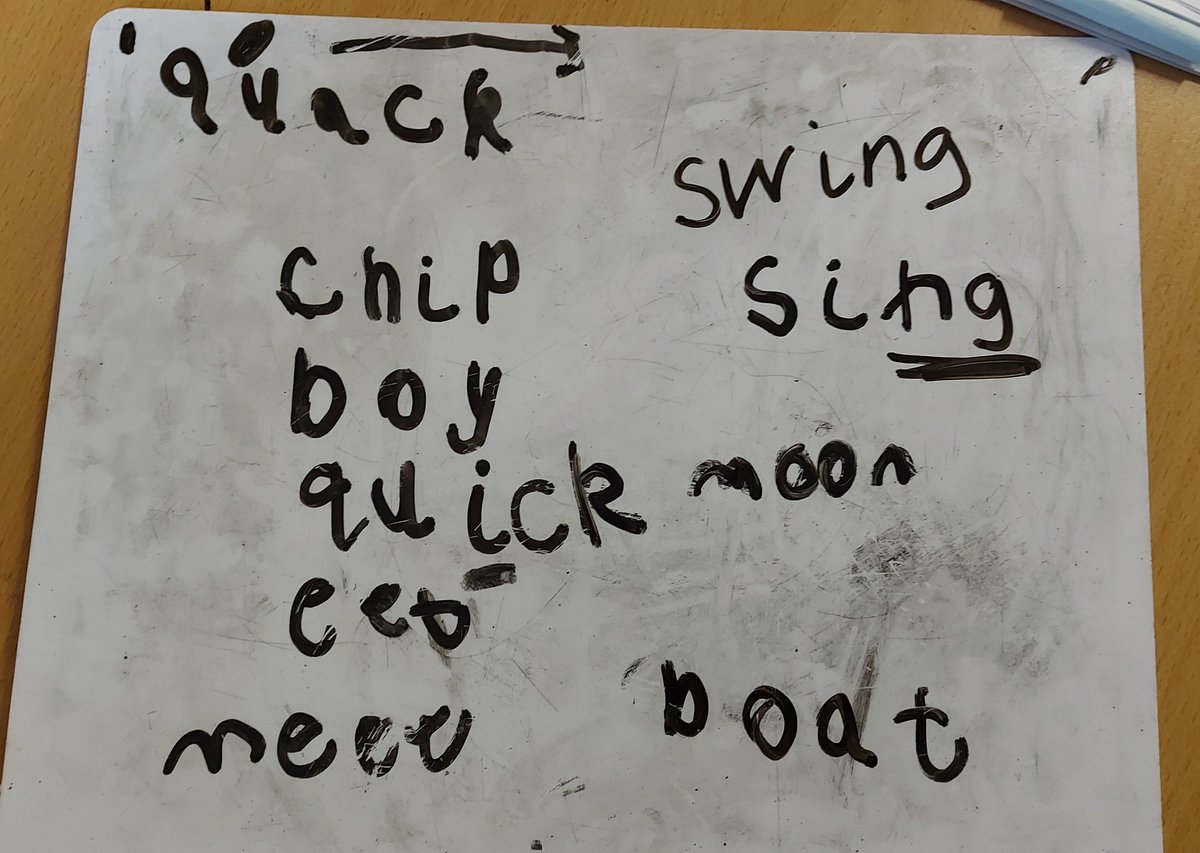 quack
swing
chip
sing
boy
quick moon
eet
meet
boat